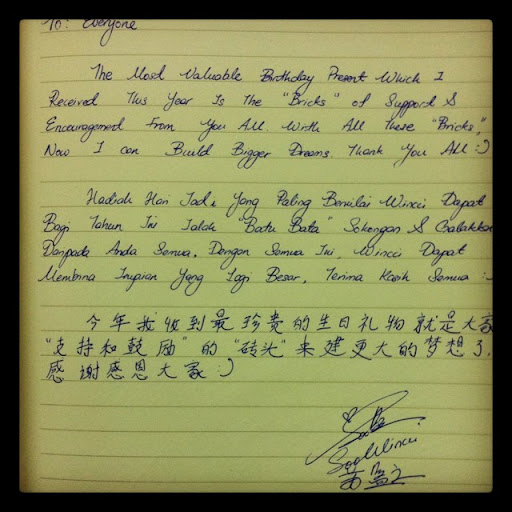 To: Everyone
The Most Valuable Birthday Present Which I
Received This Year Is the "Bricks" of Support &
Encouragement From You All. With All these "Bricks",
Now I can Build Bigger Dreams. Thank You All :)
Hadiah Hari Jadi Yang Paling Bernilai Winci Dapat
Bagi Tahun Ini Ialah "Batu Bata" Sokongan & Galakkan
Daripada Anda Semua. Dengan Semua Ini, Winci Dapat
Membina Impian Yang Lagi Besar. Terima Kasih Semua :)
今年我收到最珍贵的生日礼物就是大家
"支持和鼓励"的"砖头"来建更大的梦想了.
感谢感恩大家 :)
Soo Winci